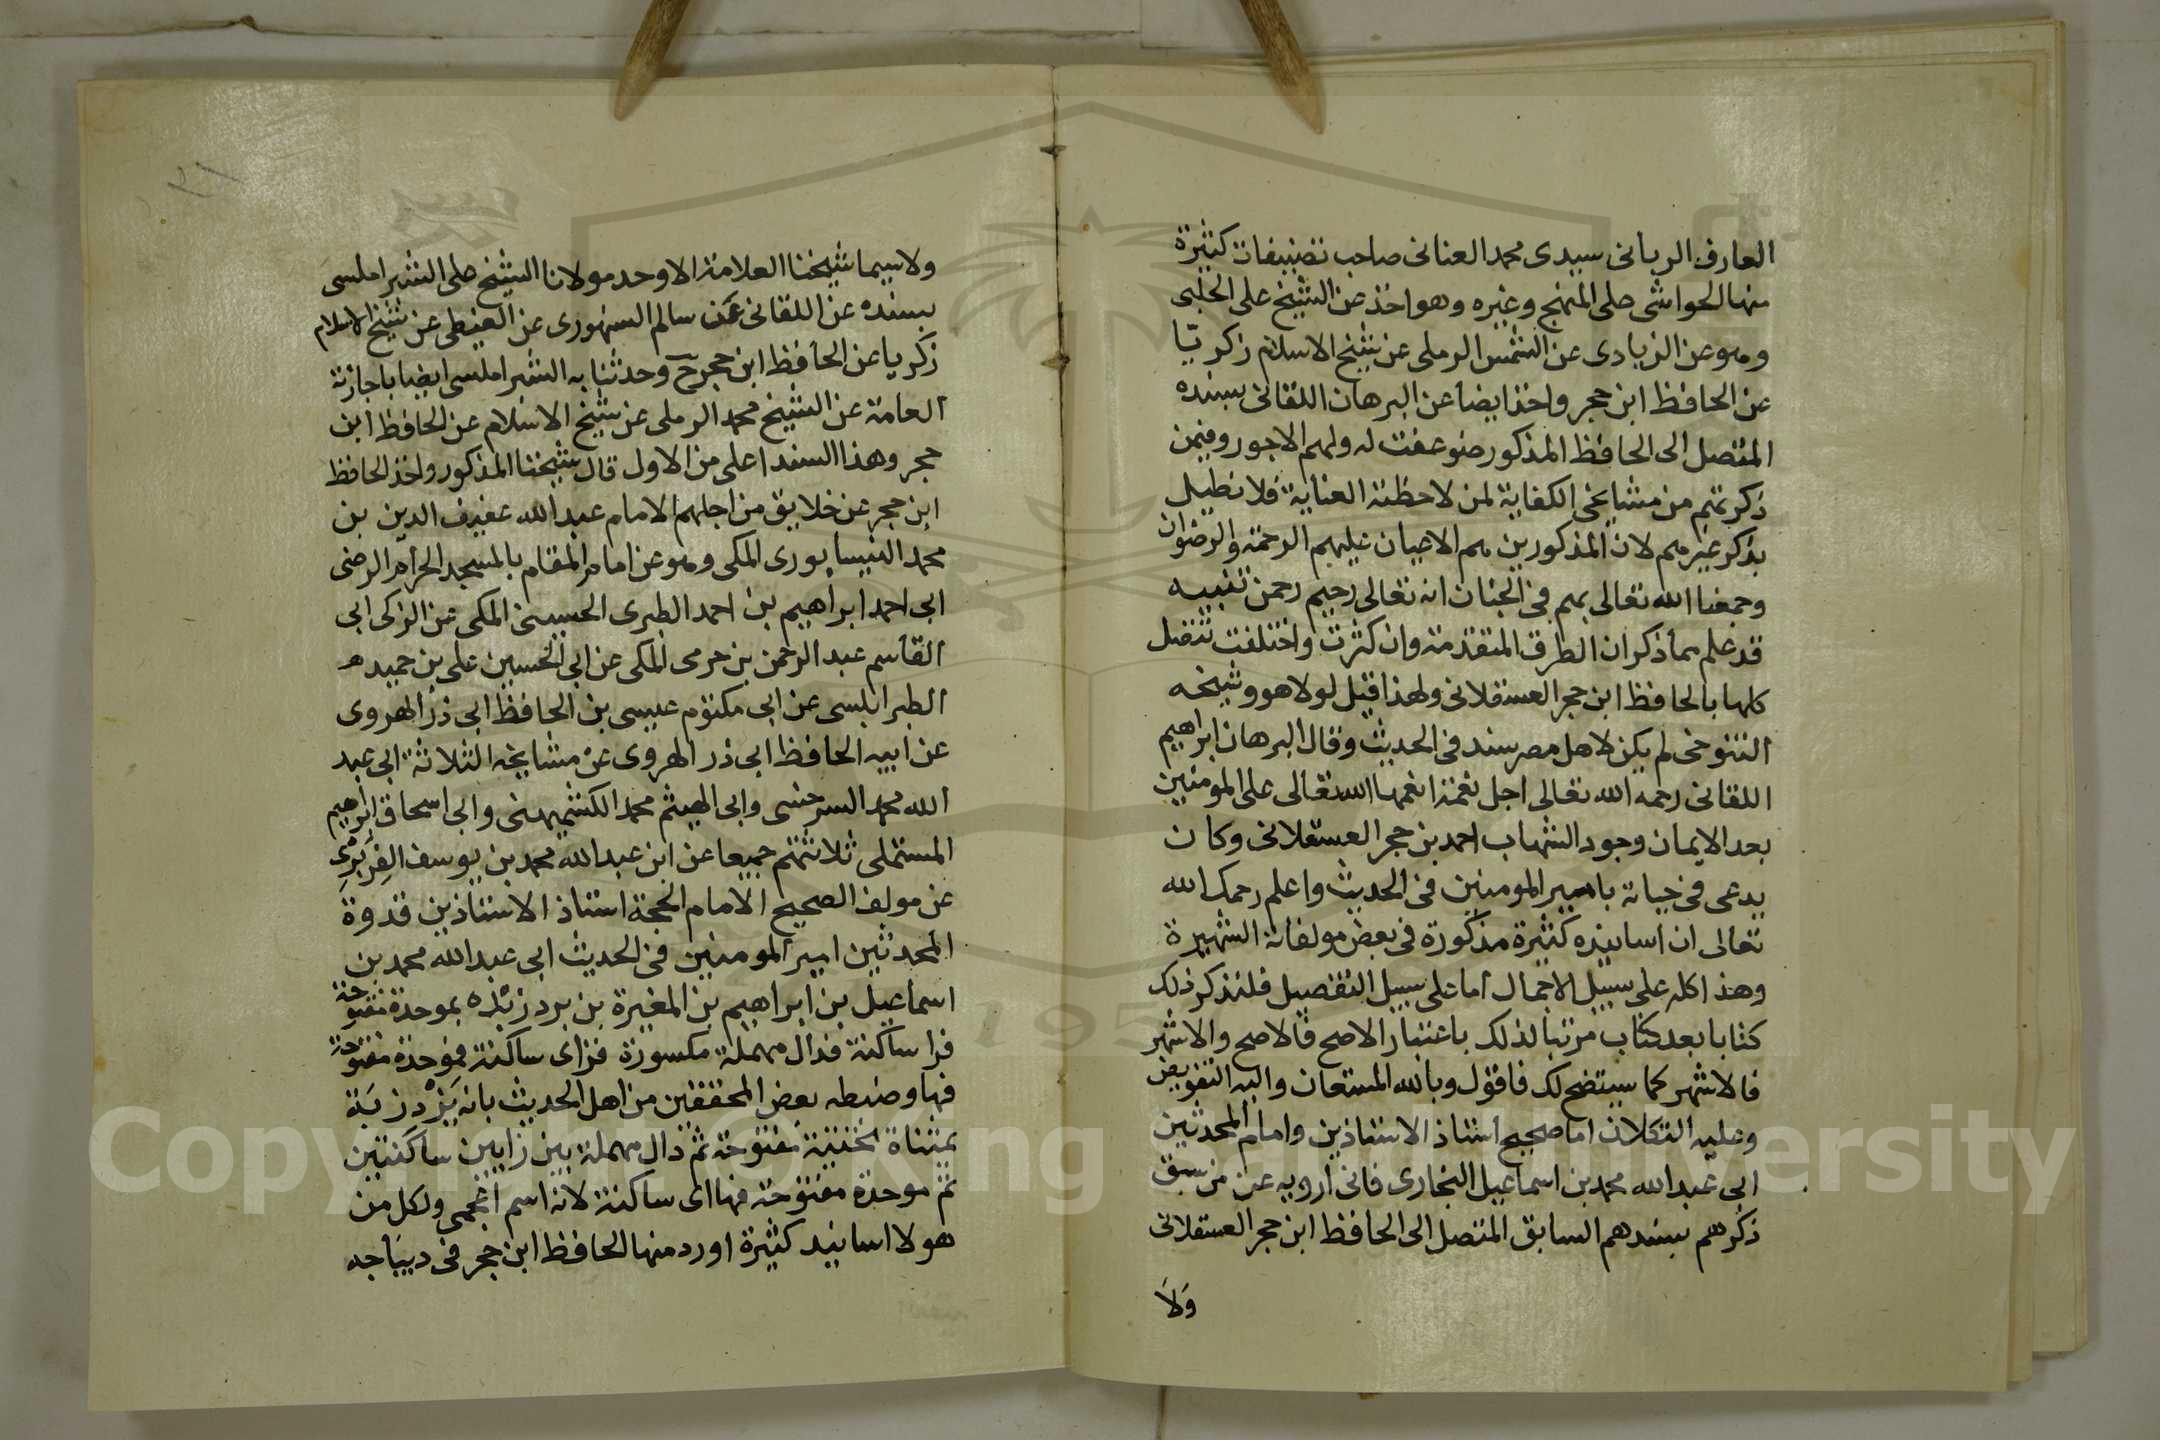 العارف الربانى سيدى محمد العنانى صاحب تصنيفات كثيرة
منها الحواشى على المنهج وغيره وهو اخذ عن الشيخ على الحلبى
وهو عن الزيادى عن الشمس الرملى عن شيخ الاسلام زكريا
عن الحافظ ابن حجر واخذ ايضا عن البرهان اللقانى بسنده
المتصل الى الحافظ المذكور ضوعفت له ولهم الاجور وفيمن
ذكرتهم من مشايخى الكفاية لمن لاحظته العناية فلا نطيل
بذكر غيرهم لان المذكورين هم الاعيان عليهم الرحمة والرضوان
وجمعنا الله تعالى بهم فى الجنان انه تعالى رحيم رحمن تنبيه
قد علم مما ذكر ان الطرق المتقدمة وان كثرت واختلفت تتصل
كلها بالحافظ ابن حجر العسقلانى ولهذا قيل لولا هو وشيخه
التنوخى لم يكن لاهل مصر سند فى الحديث وقال البرهان ابراهيم
اللقانى رحمه الله تعالى اجل نعمة انعمها الله تعالى على المومنين
بعد الايمان وجود الشهاب احمد بن حجر العسقلانى وكان
يدعى فى حياته بامير المومنين فى الحديث واعلم رحمك الله
تعالى ان اسانيده كثيرة مذكورة فى بعض مولفاته الشهيرة
وهذا كله على سبيل الاجمال اما على سبيل التفصيل فلنذكر ذلك
كتابا بعد كتاب مرتبا لذلك باعتبار الاصح فالاصح والاشهر
فالاشهر كما سيتضح لك فاقول وبالله المستعان واليه التفويض
وعليه التكلان اما صحيح استاذ الاستاذين وامام المحدثين
ابى عبد الله محمد بن اسماعيل البخارى فانى ارويه عن من سبق
ذكرهم بسندهم السابق المتصل الى الحافظ ابن حجر العسقلانى
وَلَا
ولا سيما شيخنا العلامة الاوحد مولانا الشيخ على الشبراملسى
بسنده عن اللقانى عَن سالم السنهورى عن الغيطى عن شيخ الاسلام
زكريا عن الحافظ ابن حجر ح وحدثنا به الشبراملسى ايضا باجازته
العامة عن الشيخ محمد الرملى عن شيخ الاسلام عن الحافظ ابن
حجر وهذا السند اعلى من الاول قال شيخنا المذكور واخذ الحافظ
ابن حجر عن خلايق من اجلهم الامام عبد الله عفيف الدين بن
محمد النيسابورى المكى وهو عن امام المقام بالمسجد الحرام الرضى
ابى احمد ابراهيم بن احمد الطبرى الحسينى المكى عن الزكى ابى
القاسم عبد الرحمن بن حرمى المكى عن ابى الحسين على بن حميد
الطرابلسى عن ابى مكتوم عيسى بن الحافظ ابى ذر الهروى
عن ابيه الحافظ ابى ذر الهروى عن مشايخه الثلاثة ابى عبد
الله محمد السرخسى وابى الهيثم محمد الكشميهنى وابى اسحاق ابراهيم
المستملى ثلاثتهم جميعا عن ابن عبد الله محمد بن يوسف الفِرَبْرِى
عن مولف الصحيح الامام الحجة استاذ الاستاذين قدوة
المحدثين امير المومنين فى الحديث ابى عبد الله محمد بن
اسماعيل بن ابراهيم بن المغيرة بن بردزبه بموحدة مفتوحة
فرا ساكنة فدال مهملة مكسورة فزاى ساكنة فموحدة مفتوحة
فها وضبطه بعض المحققين من اهل الحديث بانه يَزْدزبَة
بمثناة تحتية مفتوحة ثم دال مهملة بين زايين ساكنتين
ثم موحدة مفتوحة فها اى ساكنة لانه اسم اعجمى ولكل من
هولا اسانيد كثيرة اورد منها الحافظ ابن حجر فى ديباجه
Copyright © King Saud University